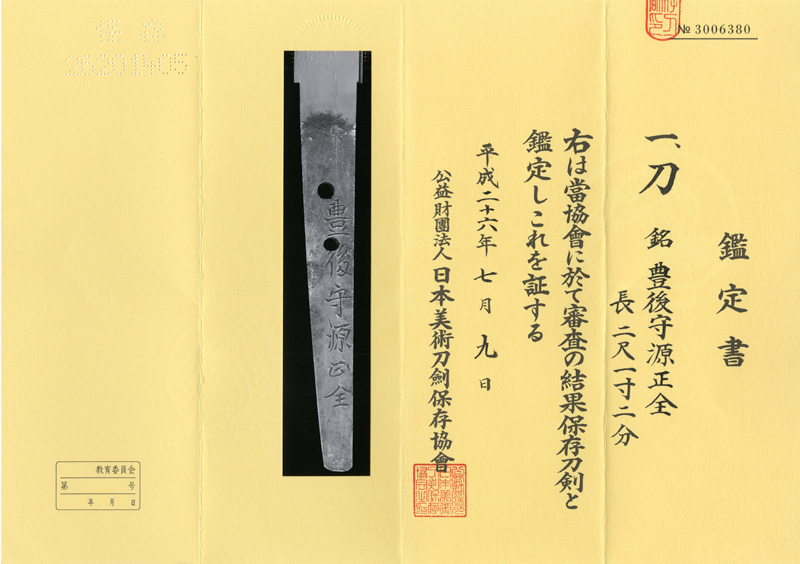 № 3006380
鑑定書
一、刀 銘 豊後守源正全
長 二尺一寸二分
右は當協會に於て審査の結果保存刀剣と
鑑定しこれを証する
平成二十六年七月九日
公益財團法人 日本美術刀劍保存協會
豊後守源正全
保存
26201405
教育委員会
第 号
年 月 日